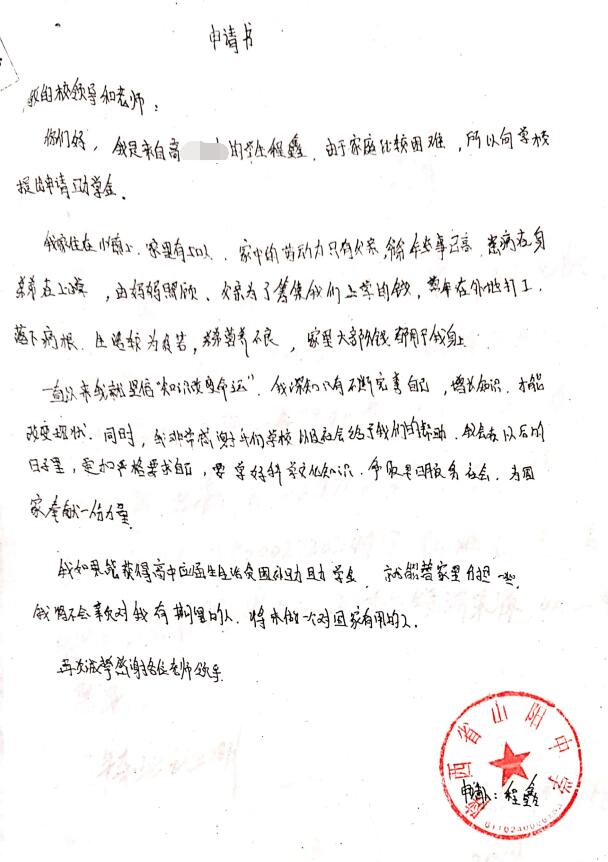 申请书
敬的校领导和老师：
你们好，我是来自高 的学生程鑫，由于家庭比较困难，所以向学校
提出申请助学金。
我家住在小镇上，家里有五口人，家中的劳动力只有父亲，爷爷年事已高，患病在身
弟弟在上学，由妈妈照顾，父亲为了筹集我们上学的钱，常年在外地打工，
落下病根，生活较为艰苦，营养不良，家里大部分钱都用于我身上
一直以来我就坚信“知识改变命运”，我深知只有不断完善自己，增长知识，才能
改变现状，同时，我非常感谢我们学校以及社会给予我们的帮助，我会在以后的
日子里，更加严格要求自己，要学好科学文化知识，争取早日服务社会，为国
家奉献一份力量
我如果能获得高中应届生生活贫困补助助学金，就能替家里分担一些
我将不会辜负对我有期望的人，将来做一个对国家有用的人。
再次诚挚感谢各位老师领导
陕西省山阳中学
申请人：程鑫